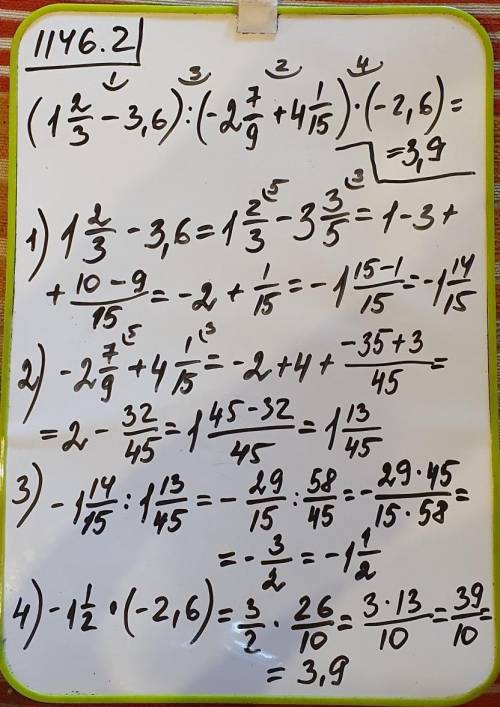 1146.2
1 3 2 4
(1 2/3 - 3,6) : (-2 7/9 + 4 1/15) · (-2,6) =
= 3,9
1) 1 2/3 - 3,6 = 1 2/3 ⁵ - 3 3/5 ³ = 1 - 3 +
+ (10 - 9)/15 = -2 + 1/15 = -1 (15 - 1)/15 = -1 14/15
2) -2 7/9 ⁵ + 4 1/15 ³ = -2 + 4 + (-35 + 3)/45 =
= 2 - 32/45 = 1 (45 - 32)/45 = 1 13/45
3) -1 14/15 : 1 13/45 = - 29/15 : 58/45 = - (29 · 45)/(15 · 58) =
= - 3/2 = -1 1/2
4) -1 1/2 · (-2,6) = 3/2 · 26/10 = (3 · 13)/10 = 39/10 =
= 3,9